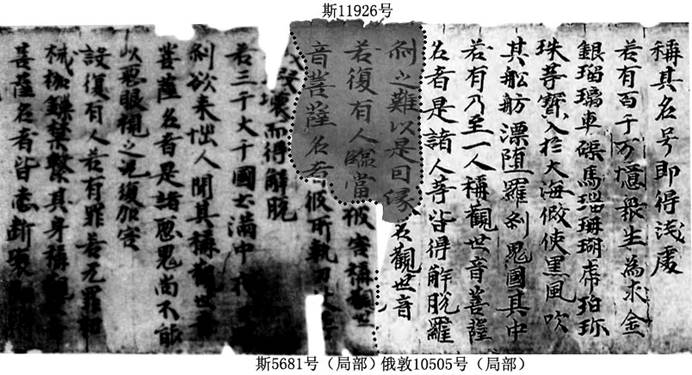 斯11926号
稱其名号即得淺處
若有百千万憶衆生為求金
銀瑠璃車磲馬瑙珊瑚虎珀珎
珠等寳入於大海假使黑風吹
其舩舫漂堕羅刹鬼國其中
若有乃至一人稱觀世音菩薩
名者是諸人等皆得解脱羅
刹之難以是因縁名觀世音
若復有人臨當被害稱觀世
音菩薩名者彼所執刀
壞而得解脱
若三千大千國土滿中
刹欲来惱人聞其稱觀世音
菩薩名者是諸惡鬼尚不能
以惡眼視之况復加害
設復有人若有罪若无罪杻
械枷鎖禁繫其身稱觀
菩薩名者皆悉断壞
斯5681号（局部）俄敦10505号（局部）